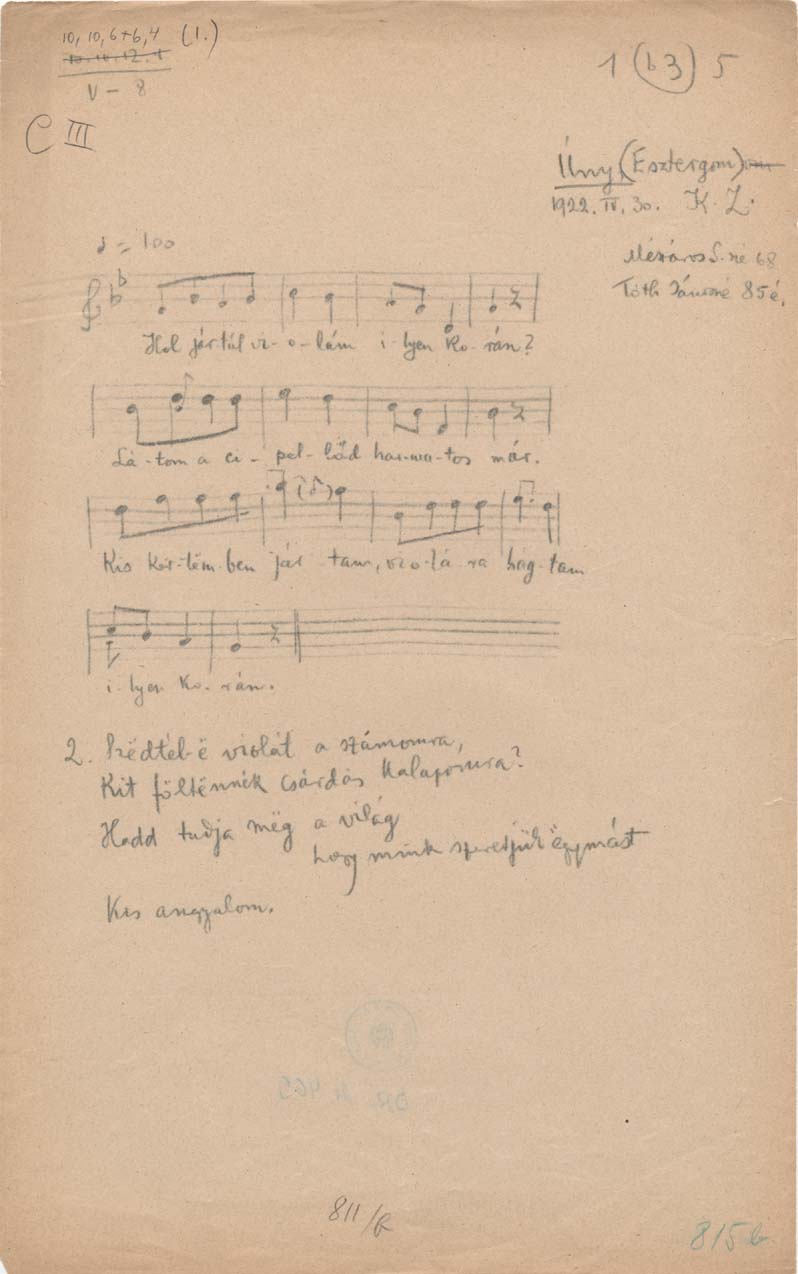 10, 10, 6+6, 4 (1.)
V – 8
C III
1 (b3) 5
Úny, (Esztergom)
1922. IV. 30. K. Z.
Mészáros S.né 68
Tóth Jánosné 85 é.
♩ = 100
Hol jártál vi-o-lám i-lyen ko-rán?
Lá-tom a ci-pel-lőd har-ma-tos már.
Kis kër-tëm-ben jár-tam, vio-lá-ra hág-tam
i-lyen ko-rán.
2. Szëdtél-ë violát a számomra,
Kit föltënnék csárdás kalapomra?
Hadd tudja mëg a világ
hogy mink szeretjük ëgymást
Kis angyalom.
811/R
815b